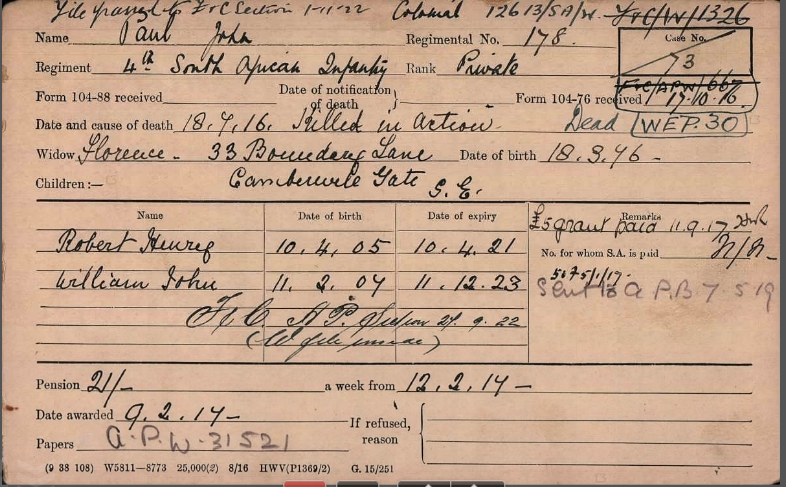 File passed to F & C Section 1-11-22 Colonial 12613/SA/W. F&C/W/1326
Name Paul John Regimental No. 178. Case No. 73
Regiment 4th South African Infantry Rank Private
F&C/APW/667
Form 104-88 received Date of notification of death Form 104-76 received 17.10.16.
Date and cause of death 18.7.16. Killed in Action. Dead WEP.30
Widow Florence - 33 Boundary Lane Date of birth 18.3.76 -
Children:— Camberwell Gate S.E.
Name Date of birth Date of expiry Remarks
£5 grant paid 11.9.17
Robert Henry 10.4.05 10.4.21 No. for whom S.A. is paid N/N -
William John 11.2.07 11.12.23 5675/1/17.
Sent to A.P.B 7.5.19
F.C. A.P. Section 27.9.22
(W file )
Pension 21/- a week from 12.2.17 -
Date awarded 9.2.17 - If refused, reason
Papers A.P.W. 31521
(9 38 108) W5811—8773 25,000(2) 8/16 HWV(P1369/2) G. 15/251